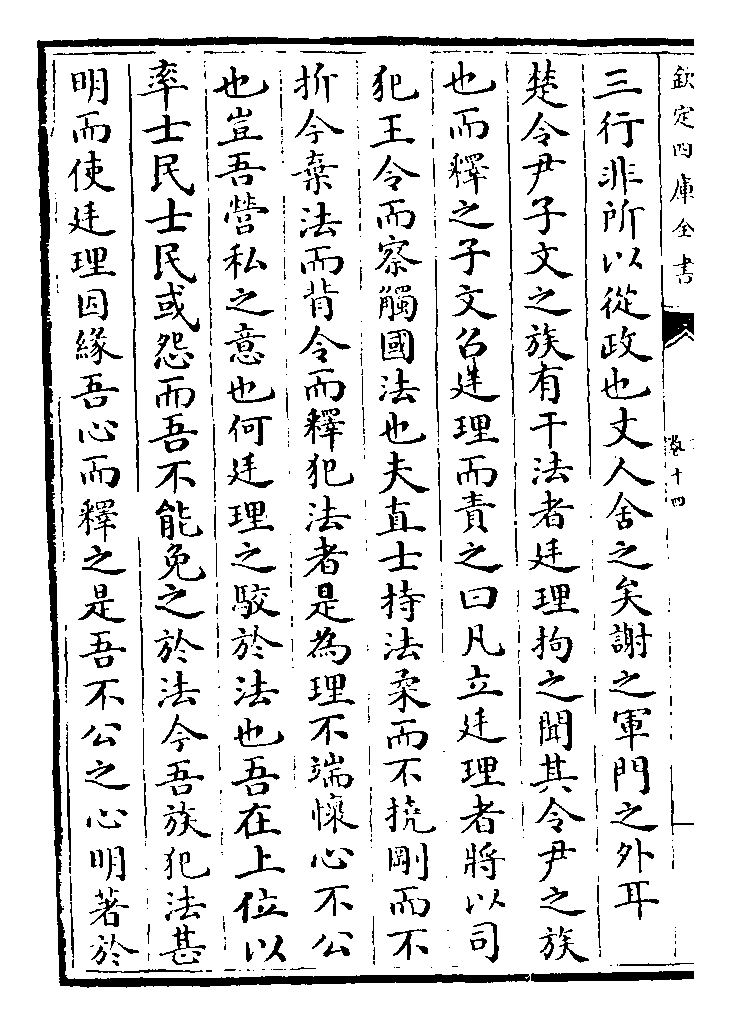 欽定四庫全書
卷十四
三行非所以從政也丈人舍之矣謝之軍門之外耳
楚令尹子文之族有干法者廷理拘之聞其令尹之族
也而釋之子文召廷理而責之曰凡立廷理者將以司
犯王令而察觸國法也夫直士持法柔而不撓剛而不
折今棄法而背令而釋犯法者是為理不端懷心不公
也豈吾營私之意也何廷理之駮於法也吾在上位以
率士民士民或怨而吾不能免之於法今吾族犯法甚
明而使廷理因緣吾心而釋之是吾不公之心明著於